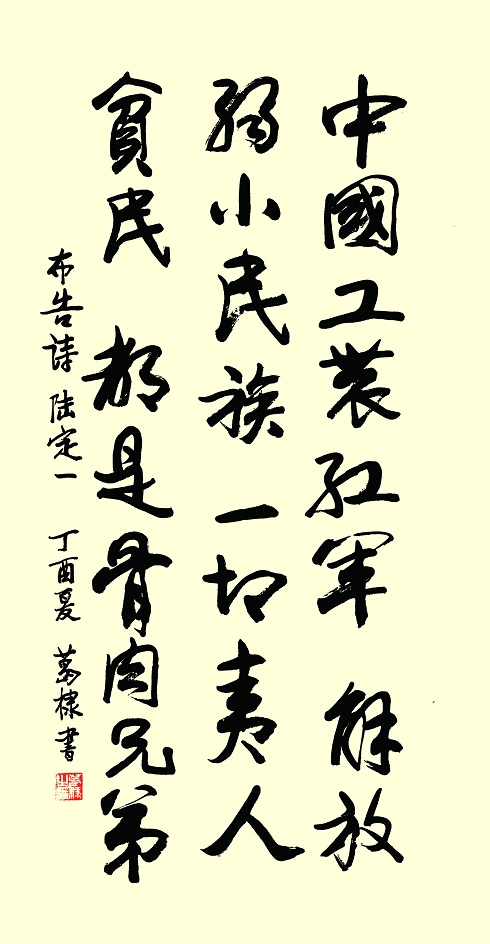 中國工農紅軍 解放
弱小民族 一切夷人
貧民 都是骨肉兄弟
布告詩 陸定一 丁酉夏 葛棣書